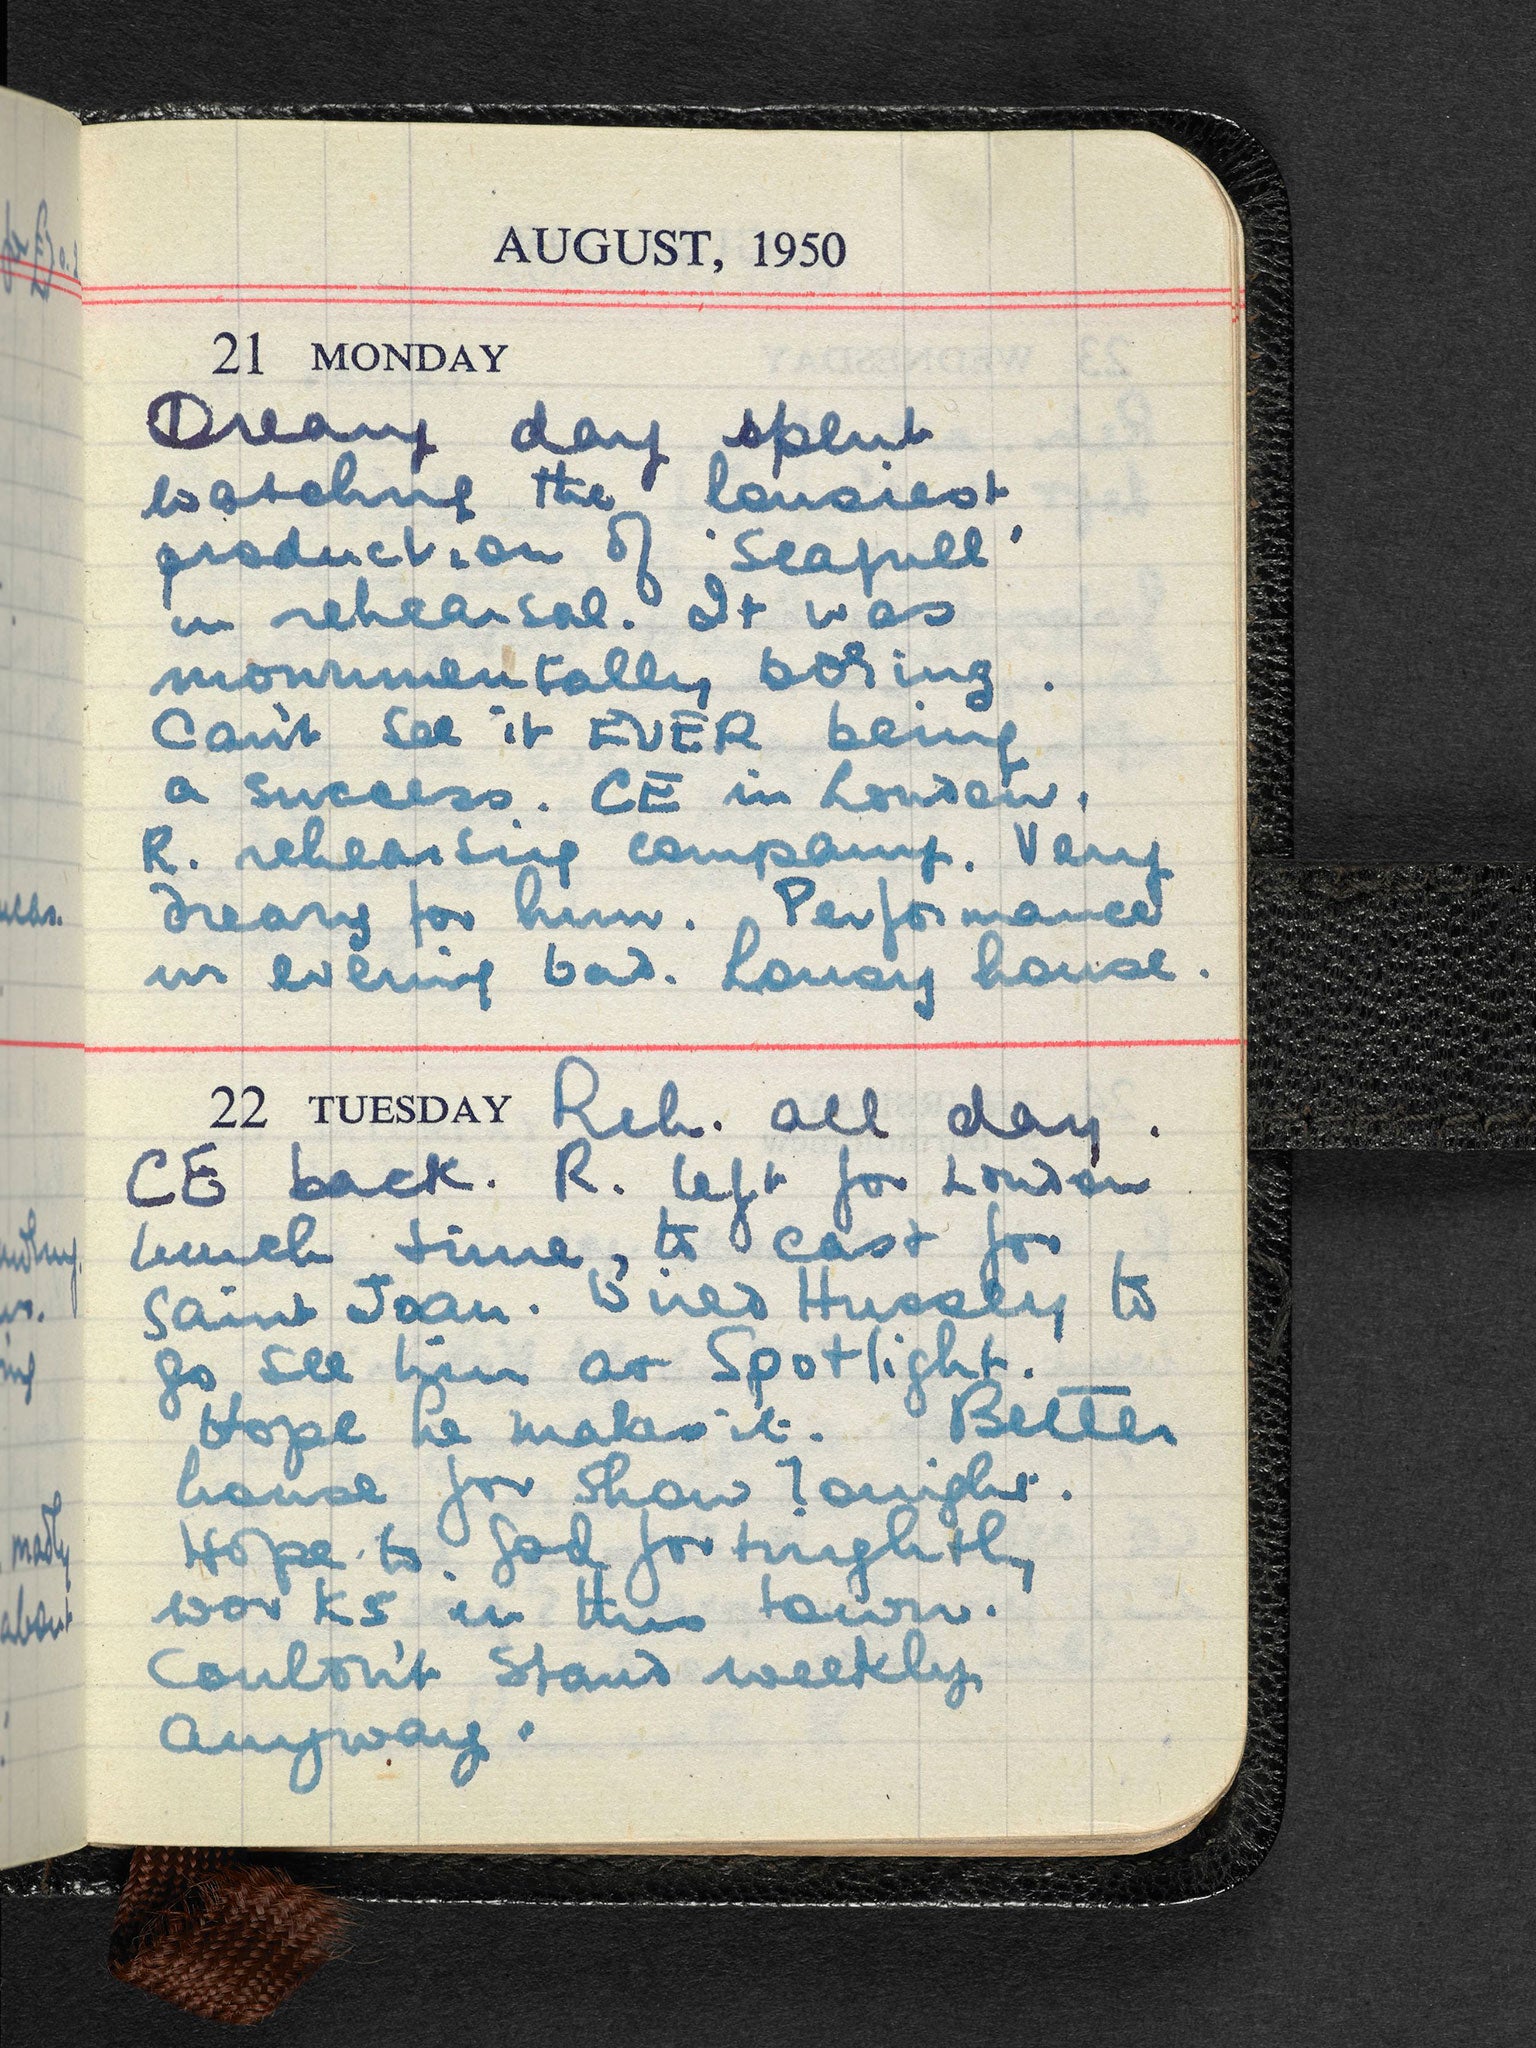 AUGUST, 1950
21 MONDAY
Dreary day spent
watching the lousiest
production of 'Seagull'
in rehearsal. It was
monumentally boring.
Can't see it EVER being
a success. CE in London.
R. rehearsing company. Very
dreary for him. Performance
in evening bad. Lousy house.
22 TUESDAY Reh. all day.
CE back. R. left for London
lunch time, to cast for
Saint Joan. Wired Hussey to
go see him at Spotlight.
Hope he makes it. Better
house for show Tonight.
Hope to God fortnightly
works in this town.
Couldn't stand weekly
anyway.
madly
about